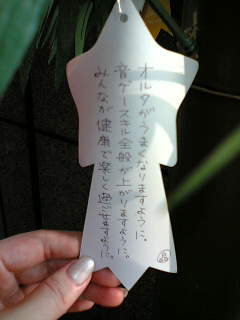 オルタがうまくなりますように。
音ゲースキル全般が上がりますように。
みんなが健康で楽しく過ごせますように。